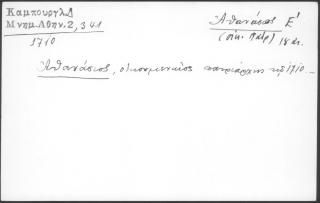 Καμπούργλ.Δ
Μνημ.Αθην.2,341
1710
Ἀθανάσιος Ε΄
(οἰκ. Πατρ) 18 αι.
Ἀθανάσιος, οἰκουμενικὸς πατριάρχης τῷ 1710.—